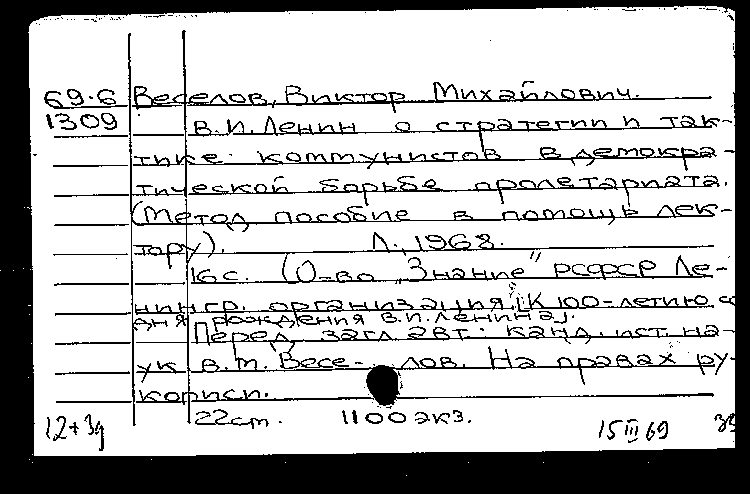 69-6 Веселов, Виктор Михайлович.
1309 В.И. Ленин о стратегии и так-
тике коммунистов в демокра-
тической борьбе пролетариата.
(Метод. пособие в помощь лек-
тору). Л., 1968.
16 с. (О-во "Знание" РСФСР Ле-
нингр. организация. [К 100-летию со
дня рождения В.И. Ленина].
Перед загл. авт.: канд. ист. на-
ук В.М. Весе- лов. На правах ру-
кописи.
22 см. 1100 экз.
12+3д 15 III 69